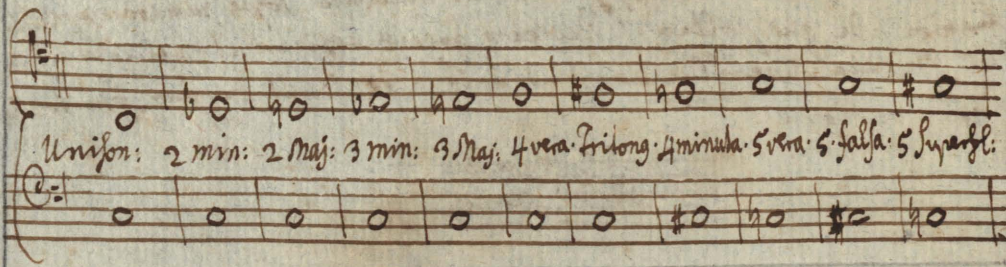 Unison: 2 min: 2 Maj: 3 min: 3 Maj: 4 vera. Tritong. 4 minuta. 5 vera. 5. falsa. 5 superfl: